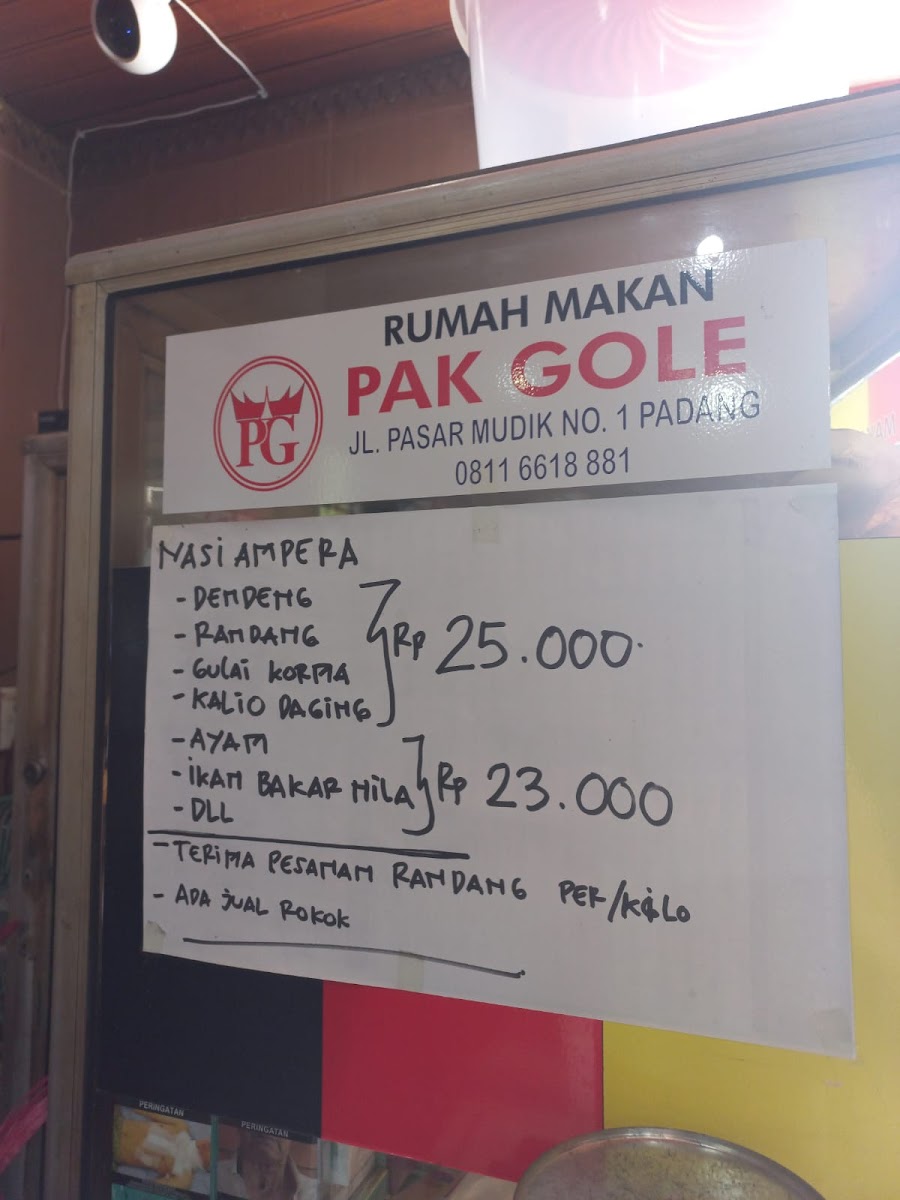 RUMAH MAKAN
PAK GOLE
PG
JL. PASAR MUDIK NO. 1 PADANG
0811 6618 881
NASI AMPERA
- DENDENG
- RANDANG
- GULAI KORMA
- KALIO DAGING
Rp 25.000
- AYAM
- IKAN BAKAR NILA
- DLL
Rp 23.000
- TERIMA PESANAN RANDANG PER/KILO
- ADA JUAL ROKOK
PERINGATAN
PERINGATAN